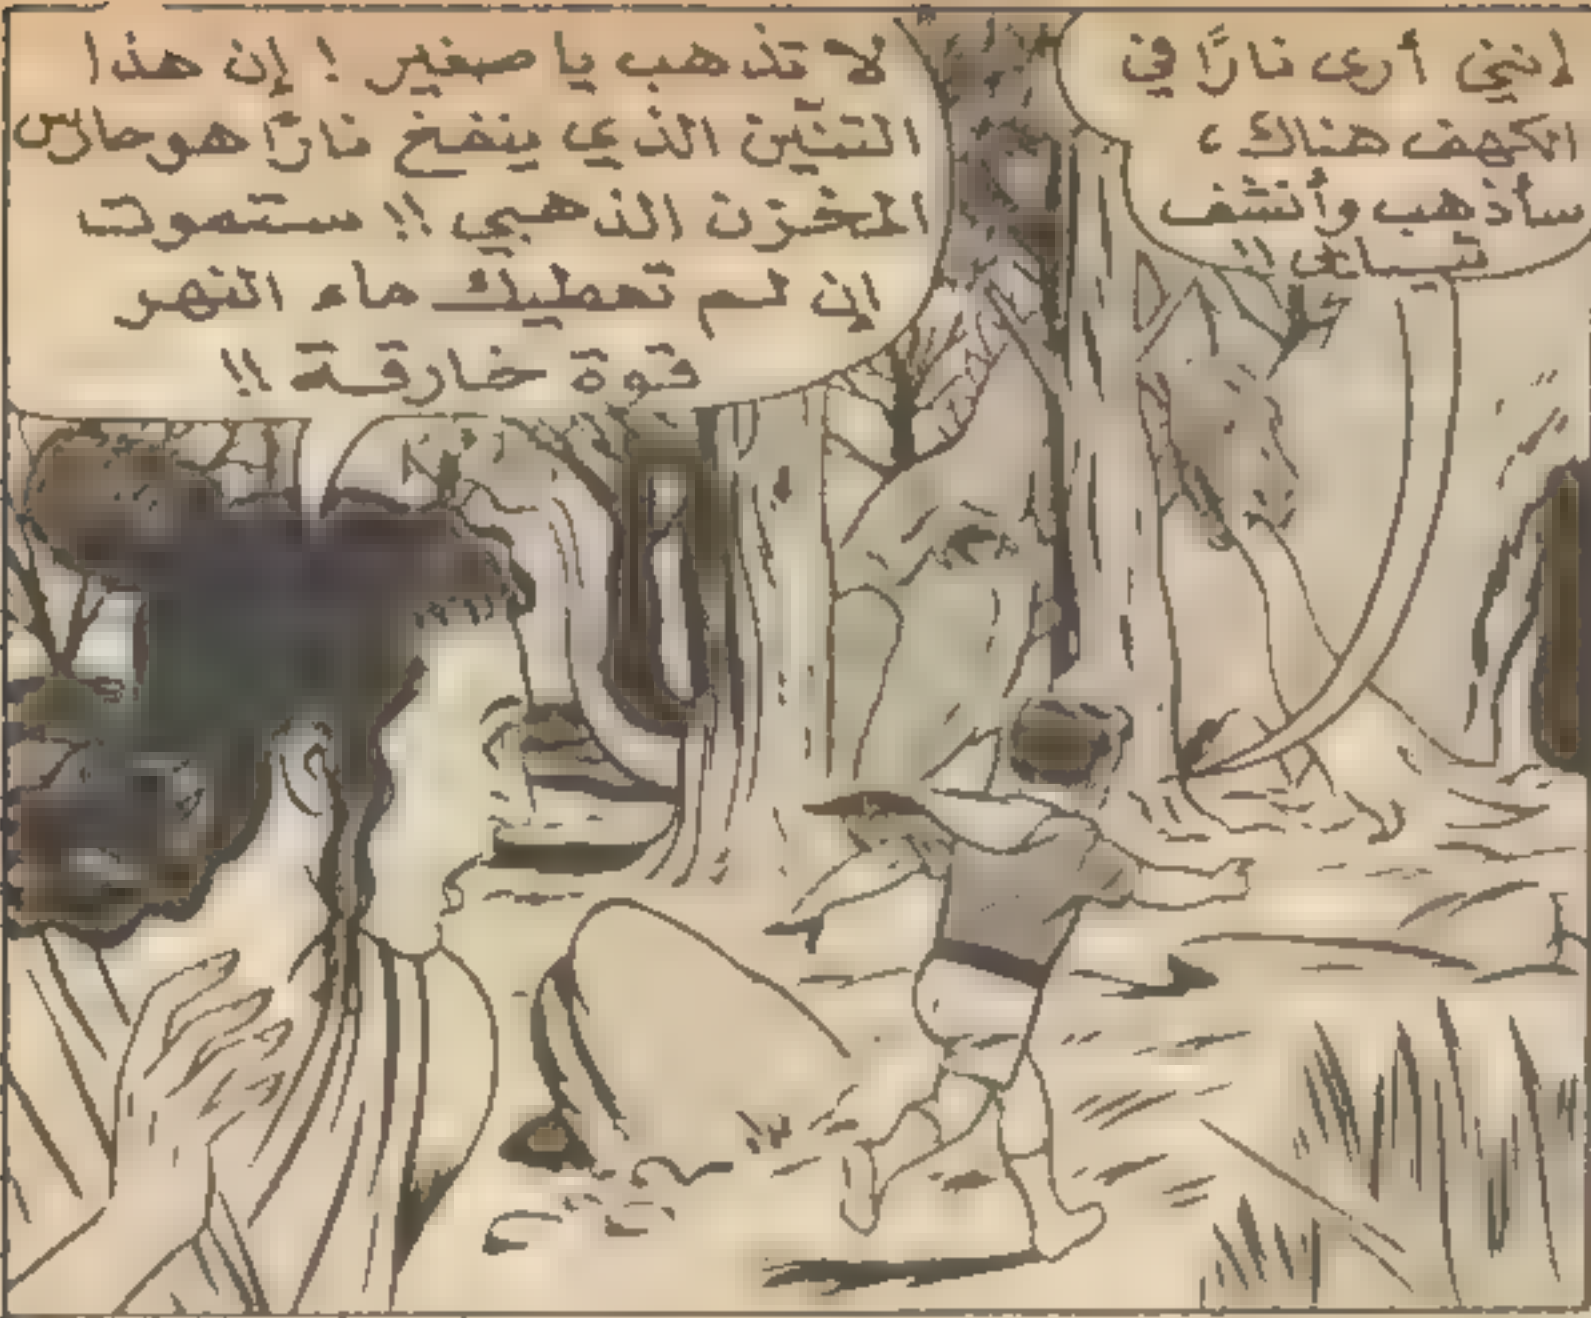 إنني أرى نارًا في
الكهف هناك،
سأذهب وأنشف
ثيابي !!
لا تذهب يا صغير ! إن هذا
التنّين الذي ينفخ نارًا هو حارس
المخزن الذهبي !! ستموت
إن لم تعطيك ماء النهر
قوة خارقة !!